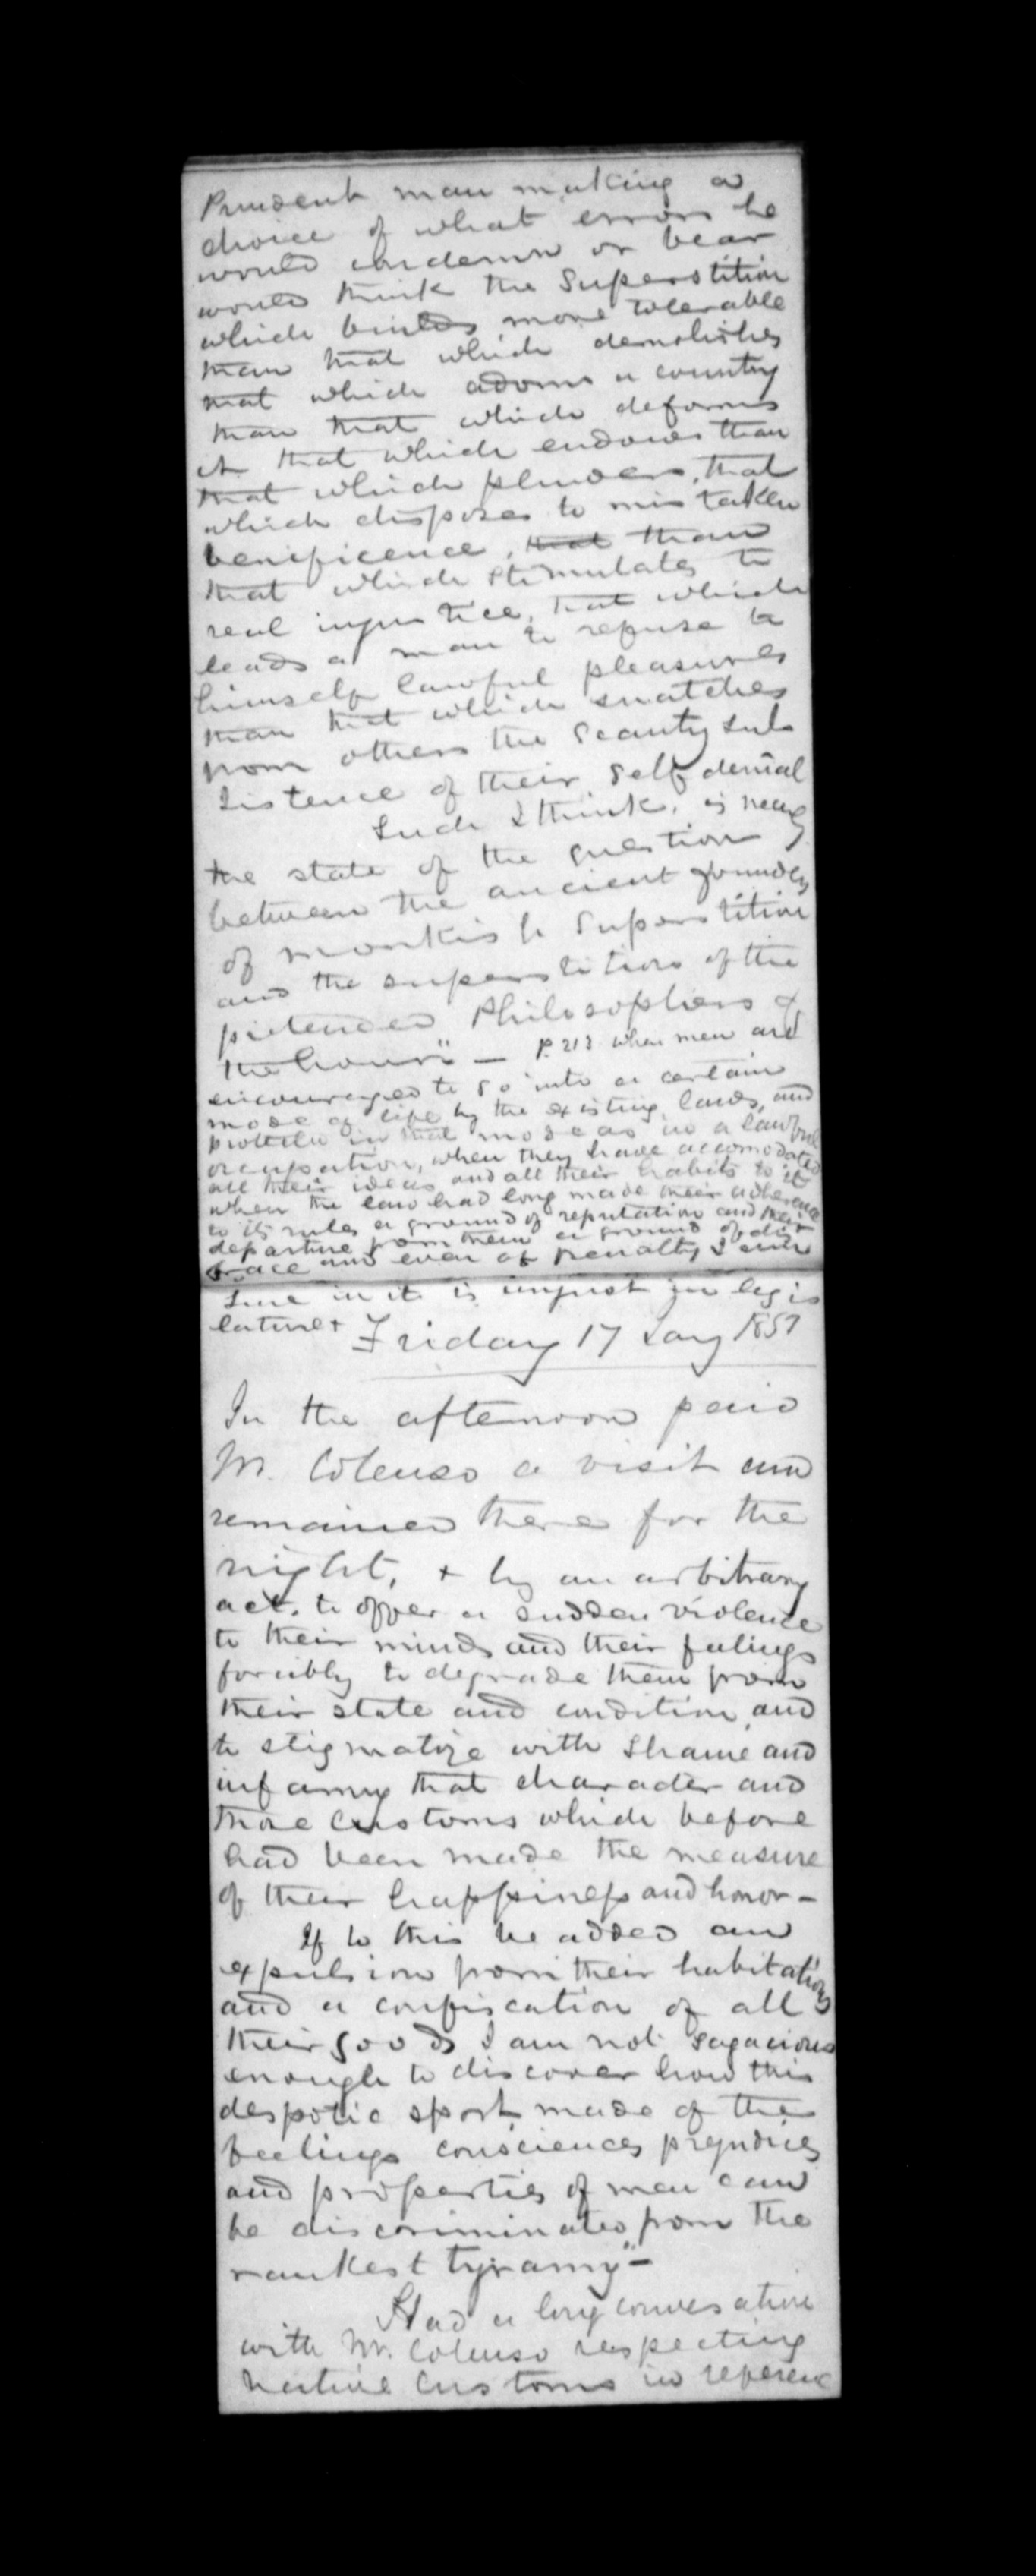 Prudent man making a
choice of what errors he
would condemn or bear
would think the Superstition
which builds more tolerable
than that which demolishes
that which adorns a country
than that which deforms
it that which endows than
that which plunders, that
which disposes to mistaken
benificence, that than
that which stimulates to
real injustice, that which
leads a man to refuse to
himself lawful pleasures
than that which snatches
from others the scanty sub
sistence of their self denial
Such I think, is nearly
the state of the question
between the ancient founders
of monkish Superstition
and the superstition of the
pretended Philosophers of
the hour" — P. 213 when men are
encouraged to go into a certain
mode of life by the existing laws, and
protected in that mode as in a lawful
occupation, when they have accomodated
all their ideas and all their habits to it
when the law had long made their adherence
to its rules a ground of reputation and their
departure from them a ground of dis
grace and even of penalty I am
sure it is unjust in legis
lature +
Friday 17 1857
In the afternoon paid
Mr. Colenso a visit and
remained there for the
night, + by an arbitrary
act. to offer a sudden violence
to their minds and their feelings
forcibly to degrade them from
their state and condition, and
to stigmatize with shame and
infamy that character and
those customs which before
had been made the measure
of their happiness and honor -
If to this be added an
expulsion from their habitations
and a confiscation of all
their goods I am not sagacious
enough to discover how this
despotic sport made of the
feelings consciences prejudices
and properties of men can
be discriminated from the
rankest tyranny" -
Had a long conversation
with Mr. Colenso respecting
Native Customs in referenc